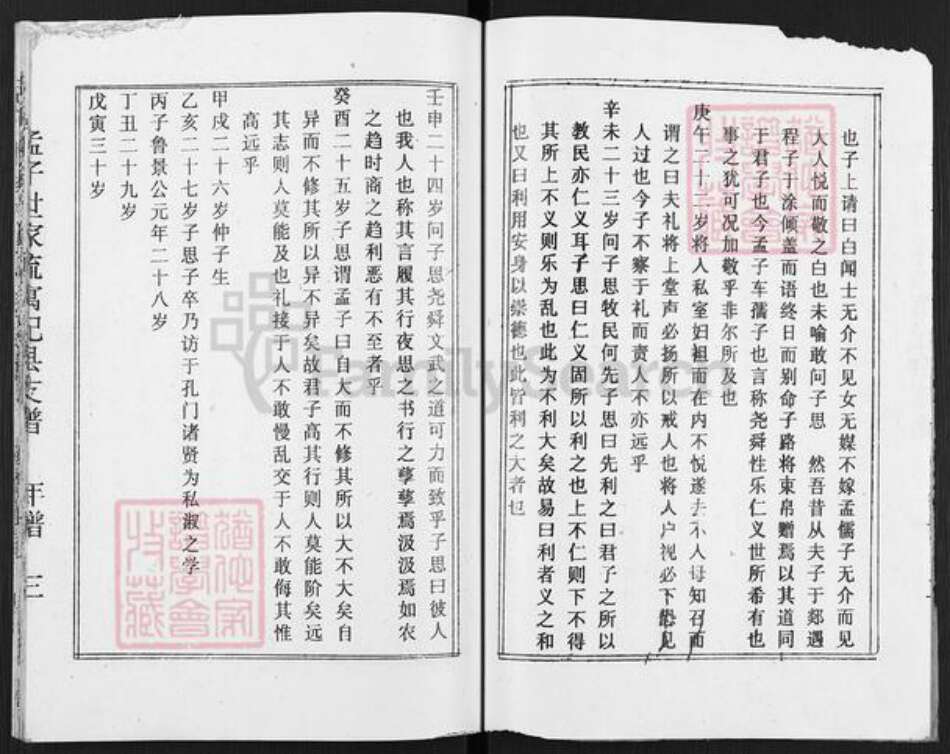 也子上请曰白闻士无介不见女无媒不嫁孟儒子无介而见
大人悦而敬之白也未喻敢问子思 然吾昔从夫子于郯遇
程子于涂倾盖而语终日而别命子路将束帛赠焉以其道同
于君子也今孟子车孺子也言称尧舜性乐仁义世所希有也
事之犹可况加敬乎非尔所及也
庚午二十二岁将入私室妇袒而在内不悦遂去不入母知召而
谓之曰夫礼将上堂声必扬所以戒人也将入户视必下恐见
人过也今子不察于礼而责人不亦远乎
辛未二十三岁问子思牧民何先子思曰先利之曰君子之所以
教民亦仁义耳子思曰仁义固所以利之也上不仁则下不得
其所上不义则乐为乱也此为不利大矣故易曰利者义之和
也又曰利用安身以崇德也此皆利之大者也
壬申二十四岁问子思尧舜文武之道可力而致乎子思曰彼人
也我人也称其言履其行夜思之书行之孳孳焉汲汲焉如农
之趋时商之趋利恶有不至者乎
癸酉二十五岁子思谓孟子曰自大而不修其所以大不大矣自
异而不修其所以异不异矣故君子高其行则人莫能阶矣远
其志则人莫能及也礼接于人人不敢慢乱交于人人不敢侮其惟
高远乎
甲戌二十六岁仲子生
乙亥二十七岁子思子卒乃访于孔门诸贤为私淑之学
丙子鲁景公元年二十八岁
丁丑二十九岁
戊寅三十岁
孟子世家流寓记县支谱 年谱 三
FamilySearch